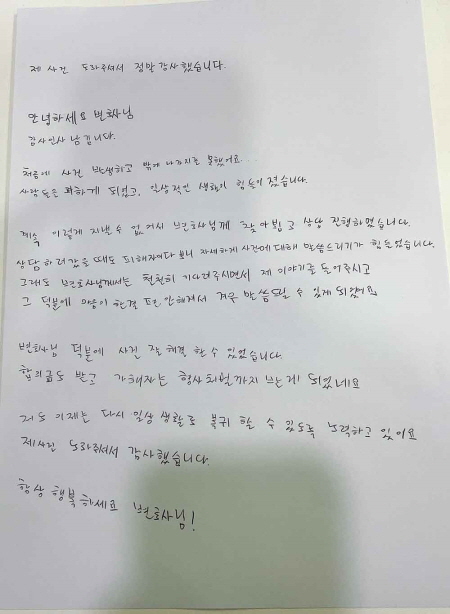 제 사건 도와주셔서 정말 감사했습니다.
안녕하세요 변호사님
감사인사 남깁니다.
처음에 사건 발생하고 밖에 나가지를 못했어요...
사람들을 피하게 되었고, 일상적인 생활이 힘들어 졌습니다.
계속 이렇게 지낼 수 없어서 변호사님께 찾아뵙고 상담 진행하였습니다.
상담 하러갔을 때도 피해자이다 보니 자세하게 사건에 대해 말씀드리기가 힘들었습니다.
그래도 변호사님께서는 천천히 기다려주시면서 제 이야기를 들어주시고
그 덕분에 마음이 한결 편안해져서 겨우 말씀드릴 수 있게 되었어요.
변호사님 덕분에 사건 잘 해결 할 수 있었습니다.
합의금도 받고 가해자는 형사처벌까지 받게 되었네요
저도 이제는 다시 일상 생활로 복귀 할 수 있도록 노력하고 있어요
제사건 도와주셔서 감사했습니다.
항상 행복하세요 변호사님!